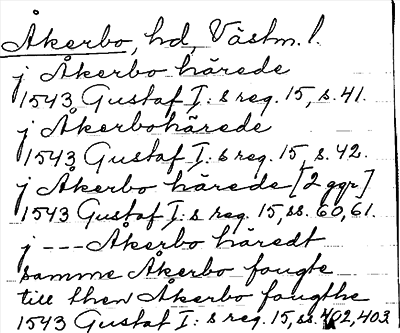 Åkerbo, hd, Västm. l.
j Åkerbo härede
1543 Gustaf I: s reg. 15, s. 41.
j Åkerbohärede
1543 Gustaf I: s reg. 15, s. 42.
j Åkerbo härede [2 ggr]
1543 Gustaf I: s reg. 15, ss. 60, 61.
j --- Åkerbo häredt
samme Åkerbo fougte
till then Åkerbo fougthe
1543 Gustaf I: s reg. 15, ss. 402, 403